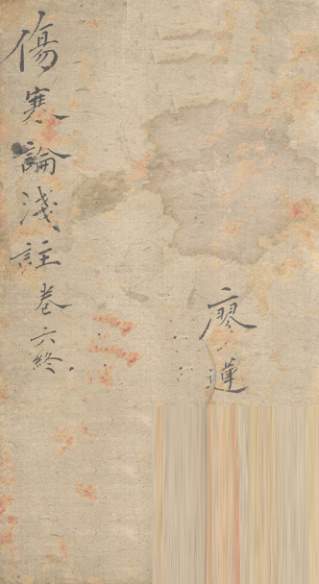 傷寒論淺註卷六終
廖小蓮